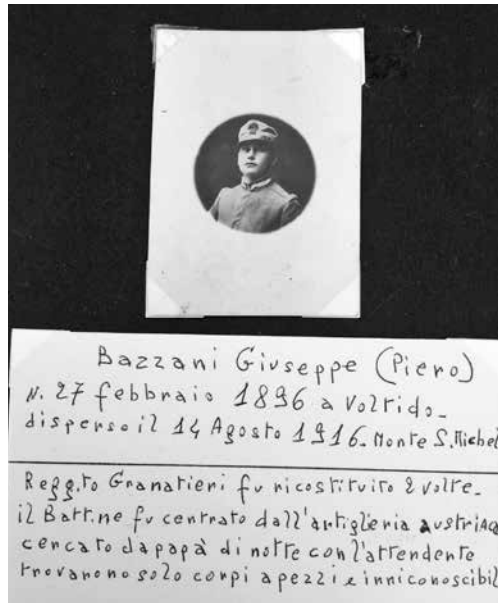 Bazzani Giuseppe (Piero)
N. 27 febbraio 1896 a Voltido_
disperso il 14 Agosto 1916_ Monte S. Michel
Regg.to Granatieri fu ricostituito 2 volte_
il Batt.ne fu centrato dall'artiglieria austriaca
cercato da papà di notte con l'attendente
trovarono solo corpi a pezzi e inniconoscibil